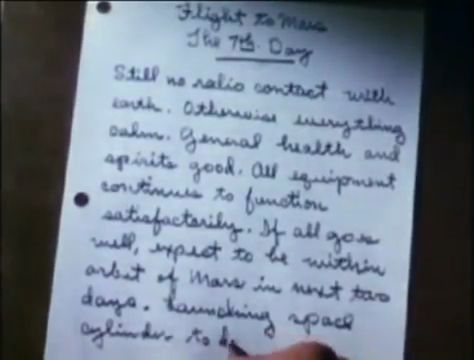 Flight to Mars
The 7th. Day
Still no radio contact with
earth. Otherwise everything
calm. General health and
spirits good. All equipment
continues to function
satisfactorily. If all goes
well, expect to be within
orbit of Mars in next two
days. Launching space
cylinder to